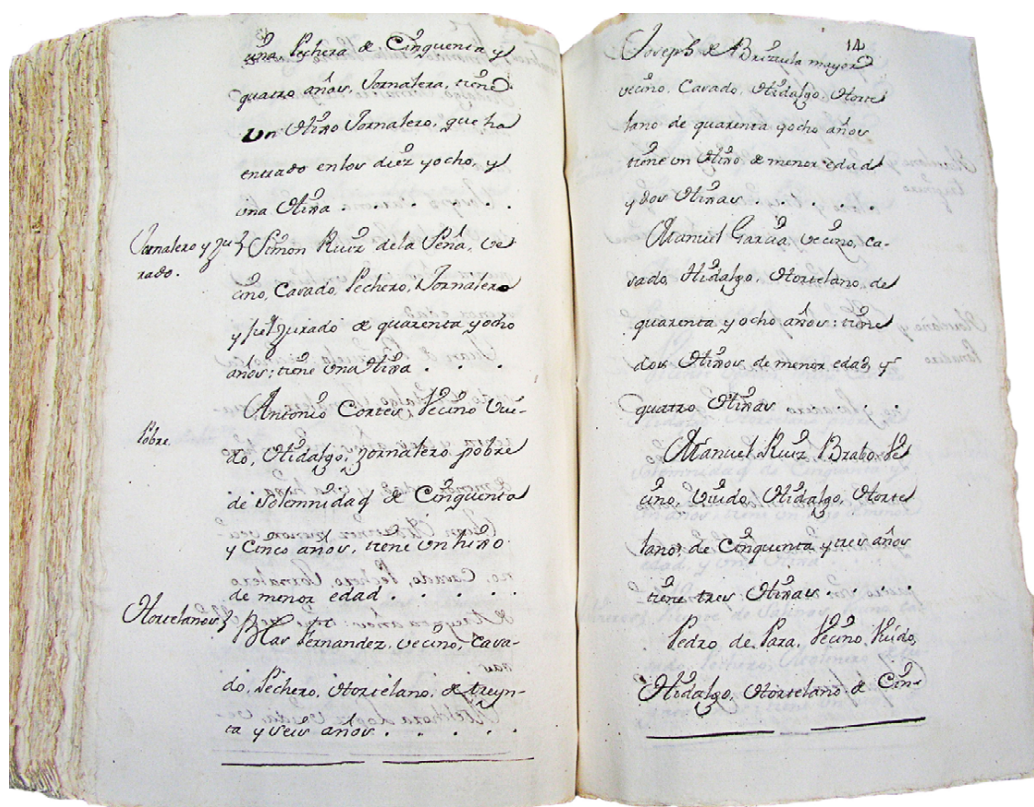 una, Pechera de Cinquenta y
quatro años, Jornalera, tiene
Un Niño Jornalero, que ha
entrado en los diez y ocho, y
una Niña . . . . . .
Jornalero y
rado.
Simon Ruiz de la Peña, Ve-
cino, Casado, Pechero, Jornalero
y Jurado de quarenta y ocho
años; tiene una Niña . . . .
Pobre
Antonio Cortes, Vecino Viu-
do, Hidalgo, Jornalero pobre
de Solemnidad de Cinquenta
y Cinco años, tiene Un Niño
de menor edad . . . . .
Hortelanos
Blas Fernandez, vecino, Casa-
do, Pechero, Hortelano, de treyn-
ta y seis años . . . . .
14
Joseph de Brizuela mayor
vecino, Casado, Hidalgo, Horte
lano de quarenta y ocho años
tiene un Niño de menor edad
y dos Niñas . . . . .
Manuel Garcia, vecino, Ca-
sado, Hidalgo, Hortelano, de
quarenta y ocho años; tiene
dos Niños, de menor edad, y
quatro Niñas . . . .
Manuel Ruiz Brabo, Ve
cino, Viudo, Hidalgo, Horte
lano, de Cinquenta y tres años
tiene tres Niñas . . . .
Pedro de Vecino, Viudo,
Hidalgo, Hortelano de Cin-